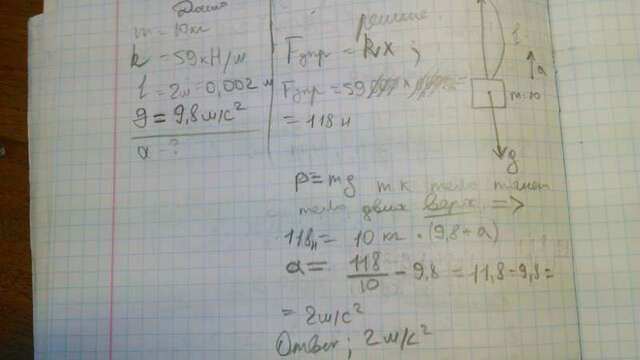 Дано
m = 10 кг
k = 59 кН/м
l = 2м = 0,002 м
g = 9,8 м/с²
a - ?
решение.
Fупр = k x ;
Fупр = 59
= 118 н
l
a
m=10
g
P = mg т.к тело
тело движ вверх =>
118н = 10 кг · (9,8 + a)
a = 118/10 - 9,8 = 11,8 - 9,8 =
= 2м/с²
Ответ; 2 м/с²